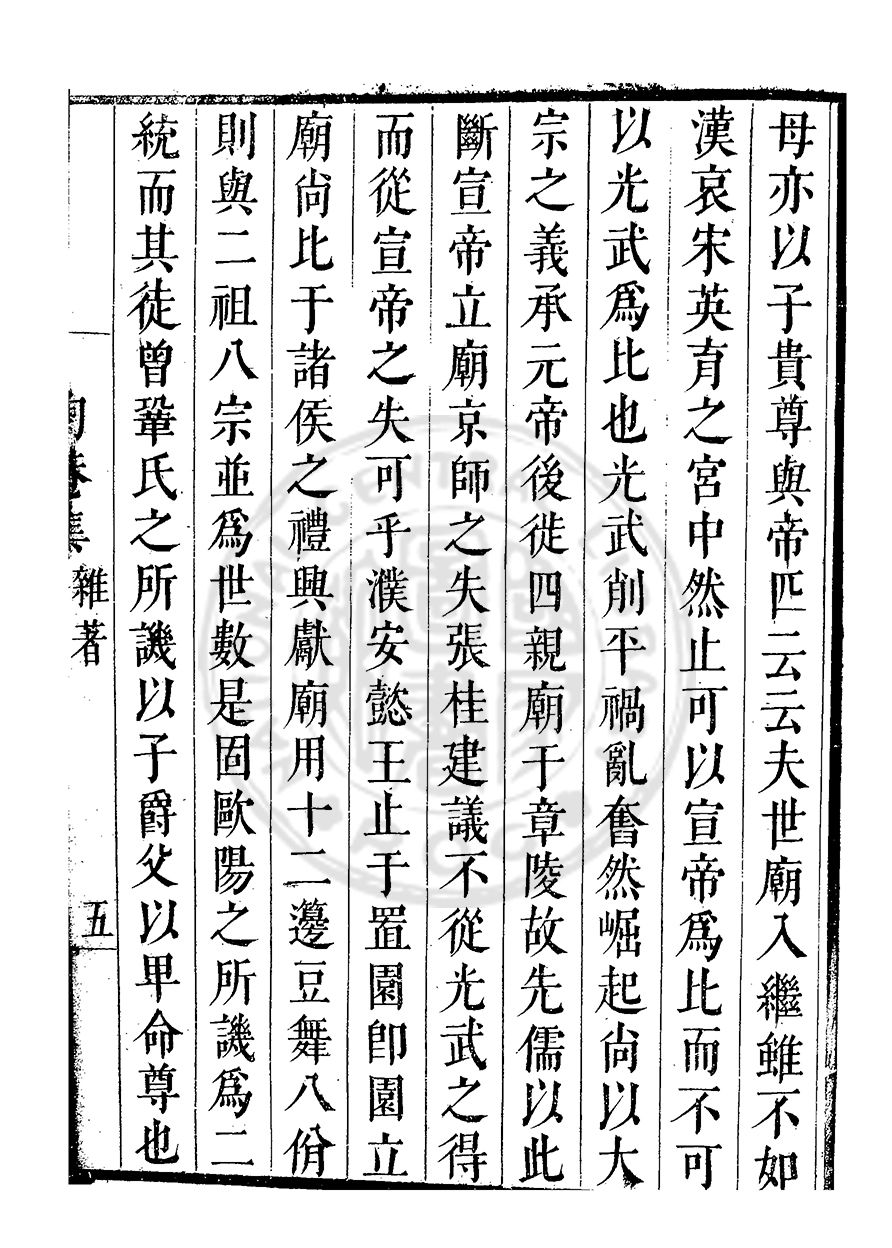 母亦以子貴尊與帝匹云云夫世廟入繼雖不如
漢哀宋英育之宮中然止可以宣帝爲比而不可
以光武爲比也光武削平禍亂奮然崛起尚以大
宗之義承元帝後徙四親廟于章陵故先儒以此
斷宣帝立廟京師之失張桂建議不從光武之得
而從宣帝之失可乎濮安懿王止于置園卽園立
廟尚比于諸侯之禮興獻廟用十二籩豆舞八佾
則與二祖八宗並爲世數是固歐陽之所譏爲二
統而其徒曾鞏氏之所譏以子爵父以卑命尊也
陶菴集 雜著 五